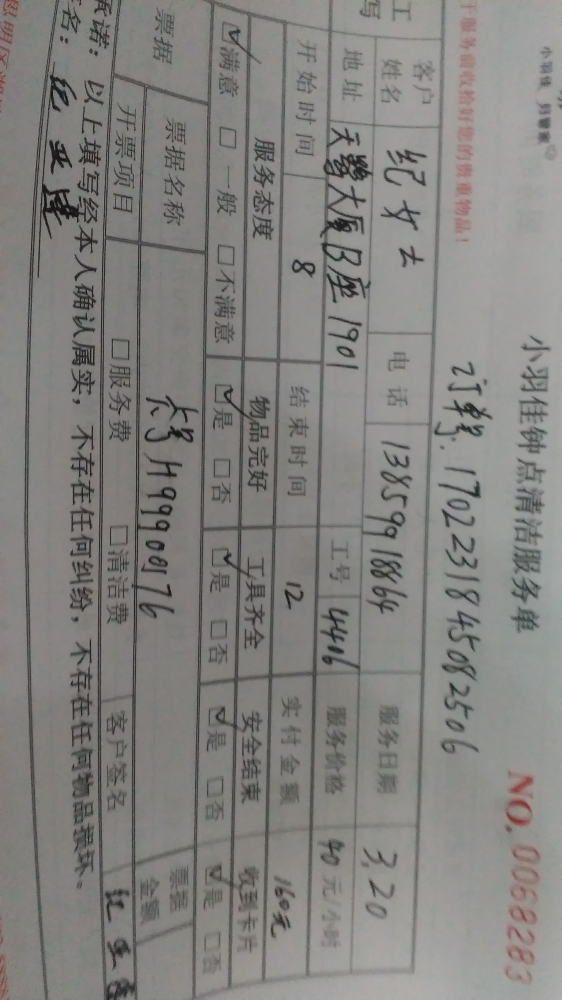 小羽佳 归管家
于服务前收拾好您的贵重物品!
小羽佳钟点清洁服务单
NO. 0068283
订单号: 1702231845082506
客户姓名 纪女士 电话 13859918864 服务日期 3.20
地址 天鹭大厦B座1901 工号 4406 服务价格 40元/小时
开始时间 8 结束时间 12 实付金额 160元
服务态度 物品完好 工具齐全 安全结束 收到卡片
☑满意 □一般 □不满意 ☑是 □否 ☑是 □否 ☑是 □否 ☑是 □否
票据 票据名称 卡号H99900176 票据金额
开票项目 □服务费 □清洁费 客户签名 纪亚
承诺: 以上填写经本人确认属实, 不存在任何纠纷, 不存在任何物品损坏。
签名: 纪亚
思明区